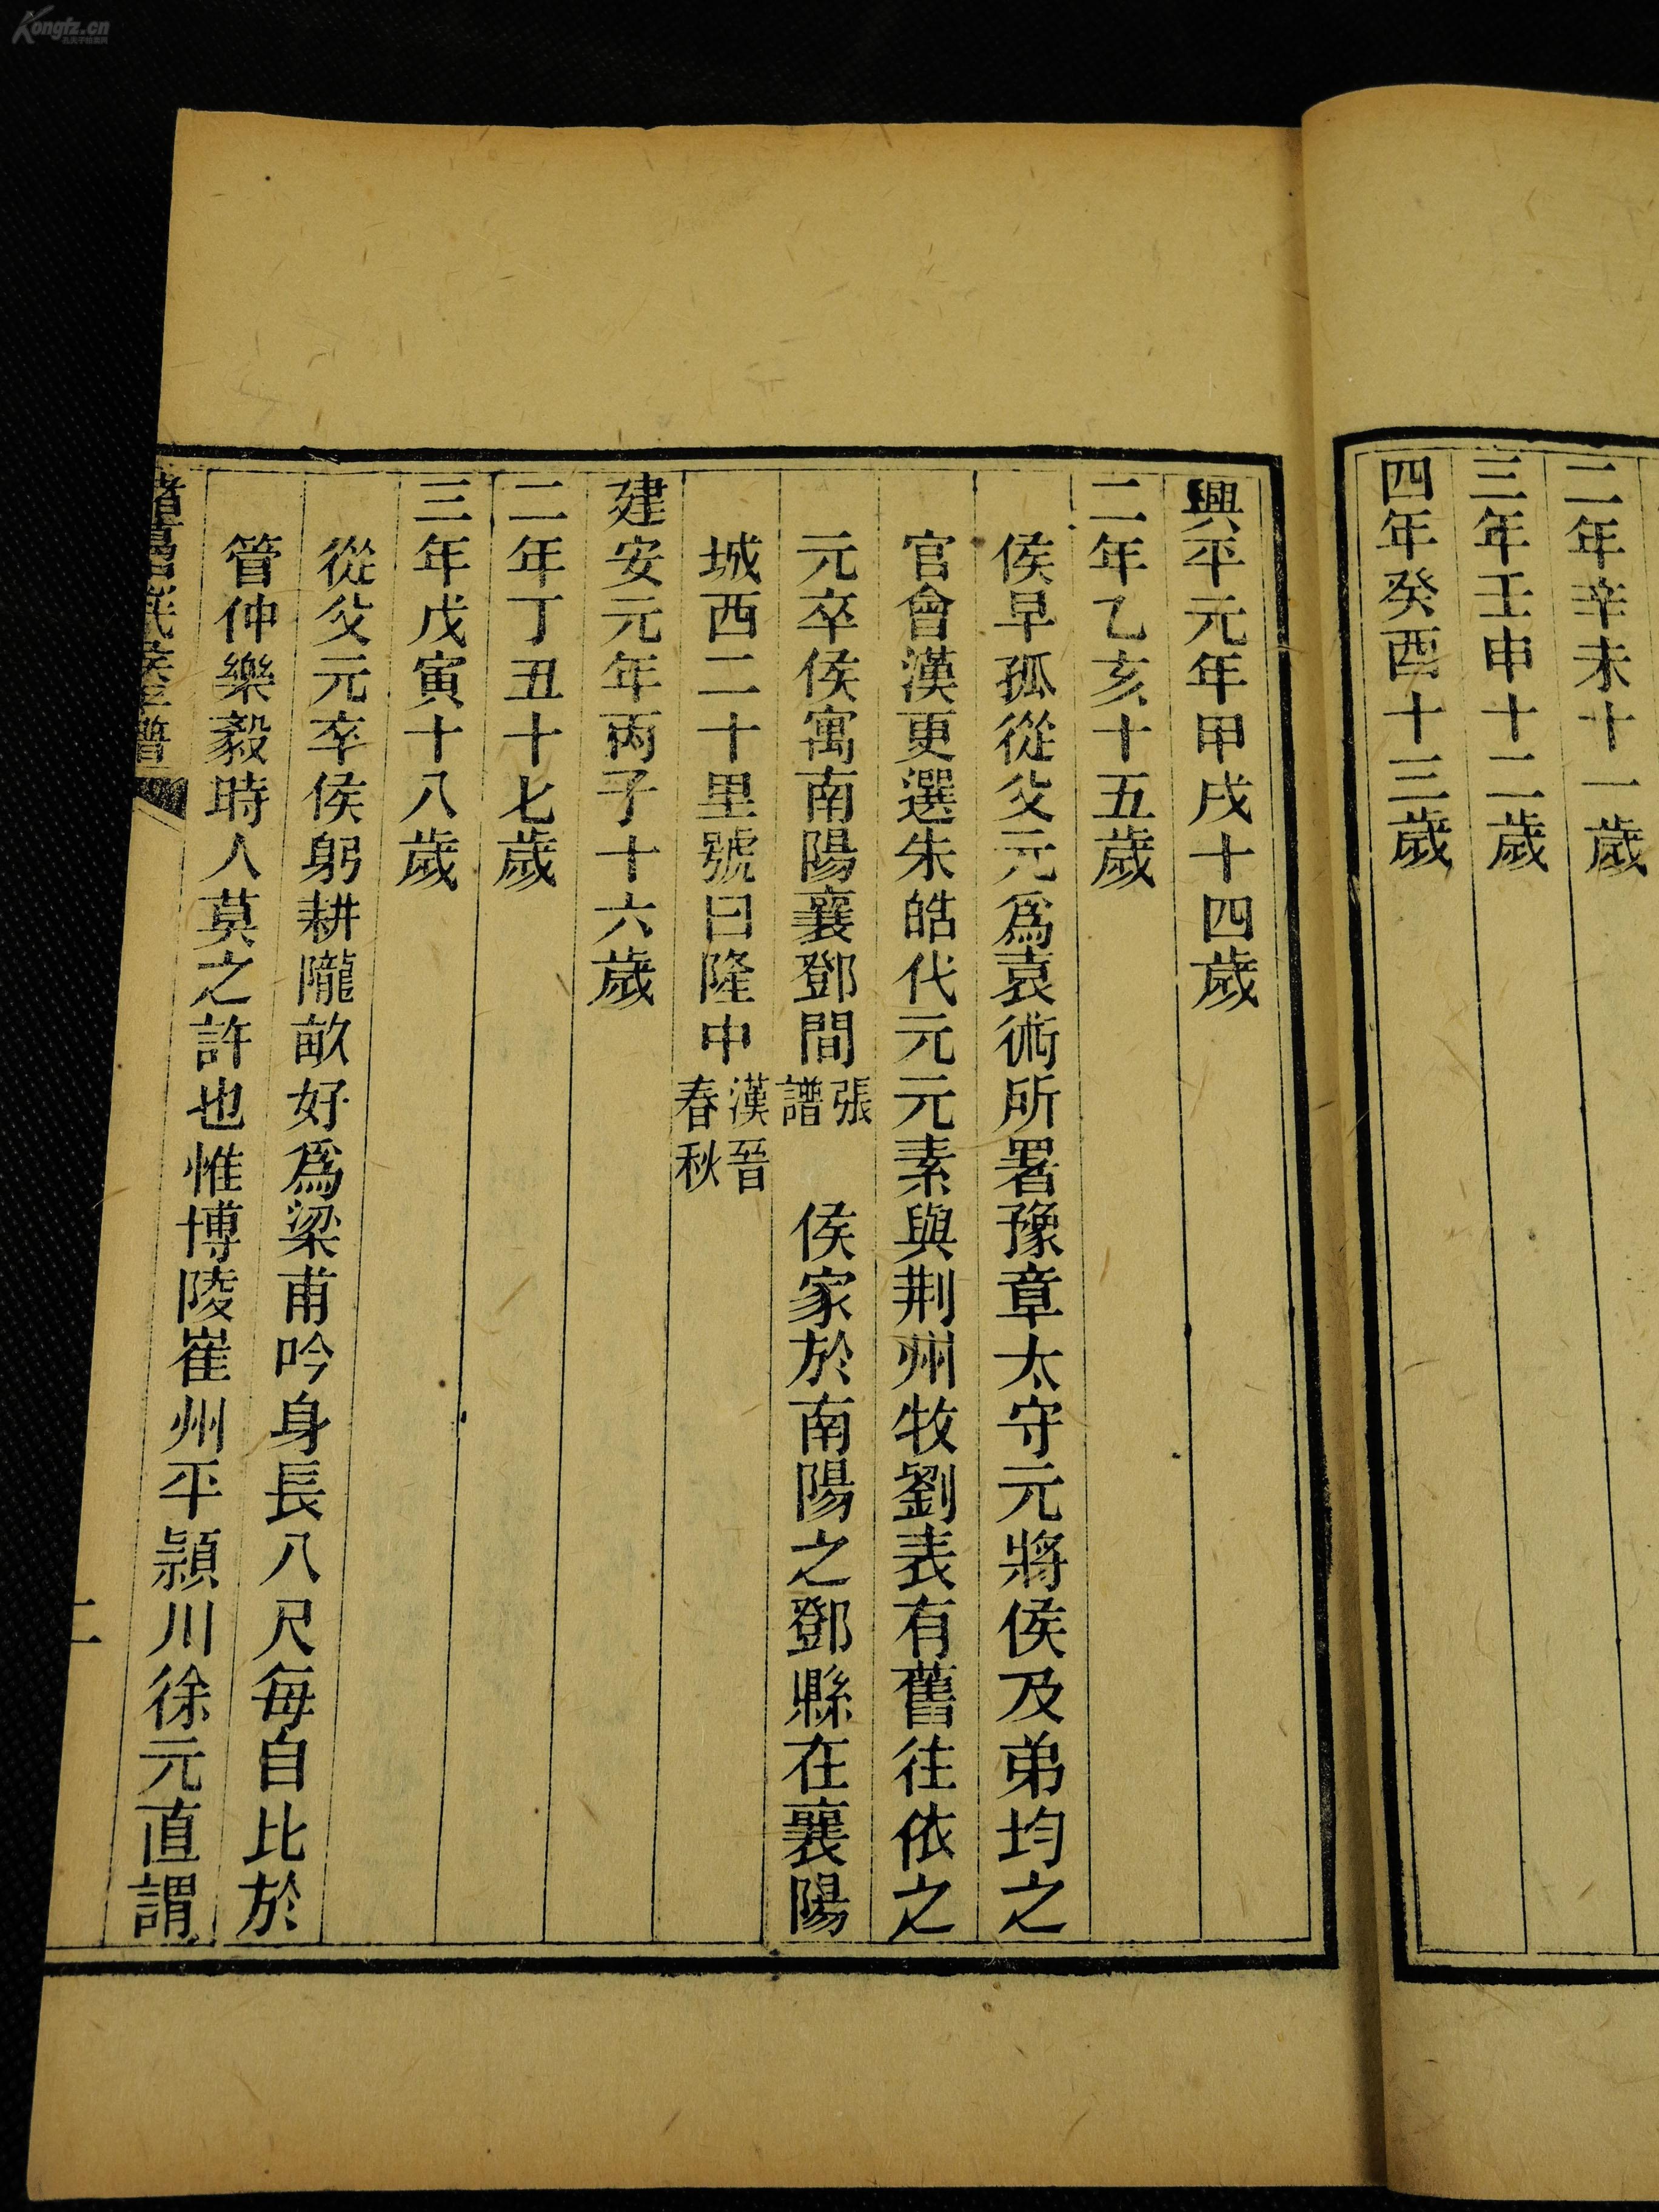 Kongfz.cn
二年辛未十一歲
三年壬申十二歲
四年癸酉十三歲
興平元年甲戌十四歲
二年乙亥十五歲
侯早孤從父元爲袁術所署豫章太守元將侯及弟均之
官會漢更選朱皓代元元素與荆州牧劉表有舊往依之
元卒侯寓南陽襄鄧間張譜　侯家於南陽之鄧縣在襄陽
城西二十里號曰隆中漢晉春秋
建安元年丙子十六歲
二年丁丑十七歲
三年戊寅十八歲
從父元卒侯躬耕隴畝好爲梁甫吟身長八尺每自比於
管仲樂毅時人莫之許也惟博陵崔州平潁川徐元直謂
諸葛武侯年譜
二